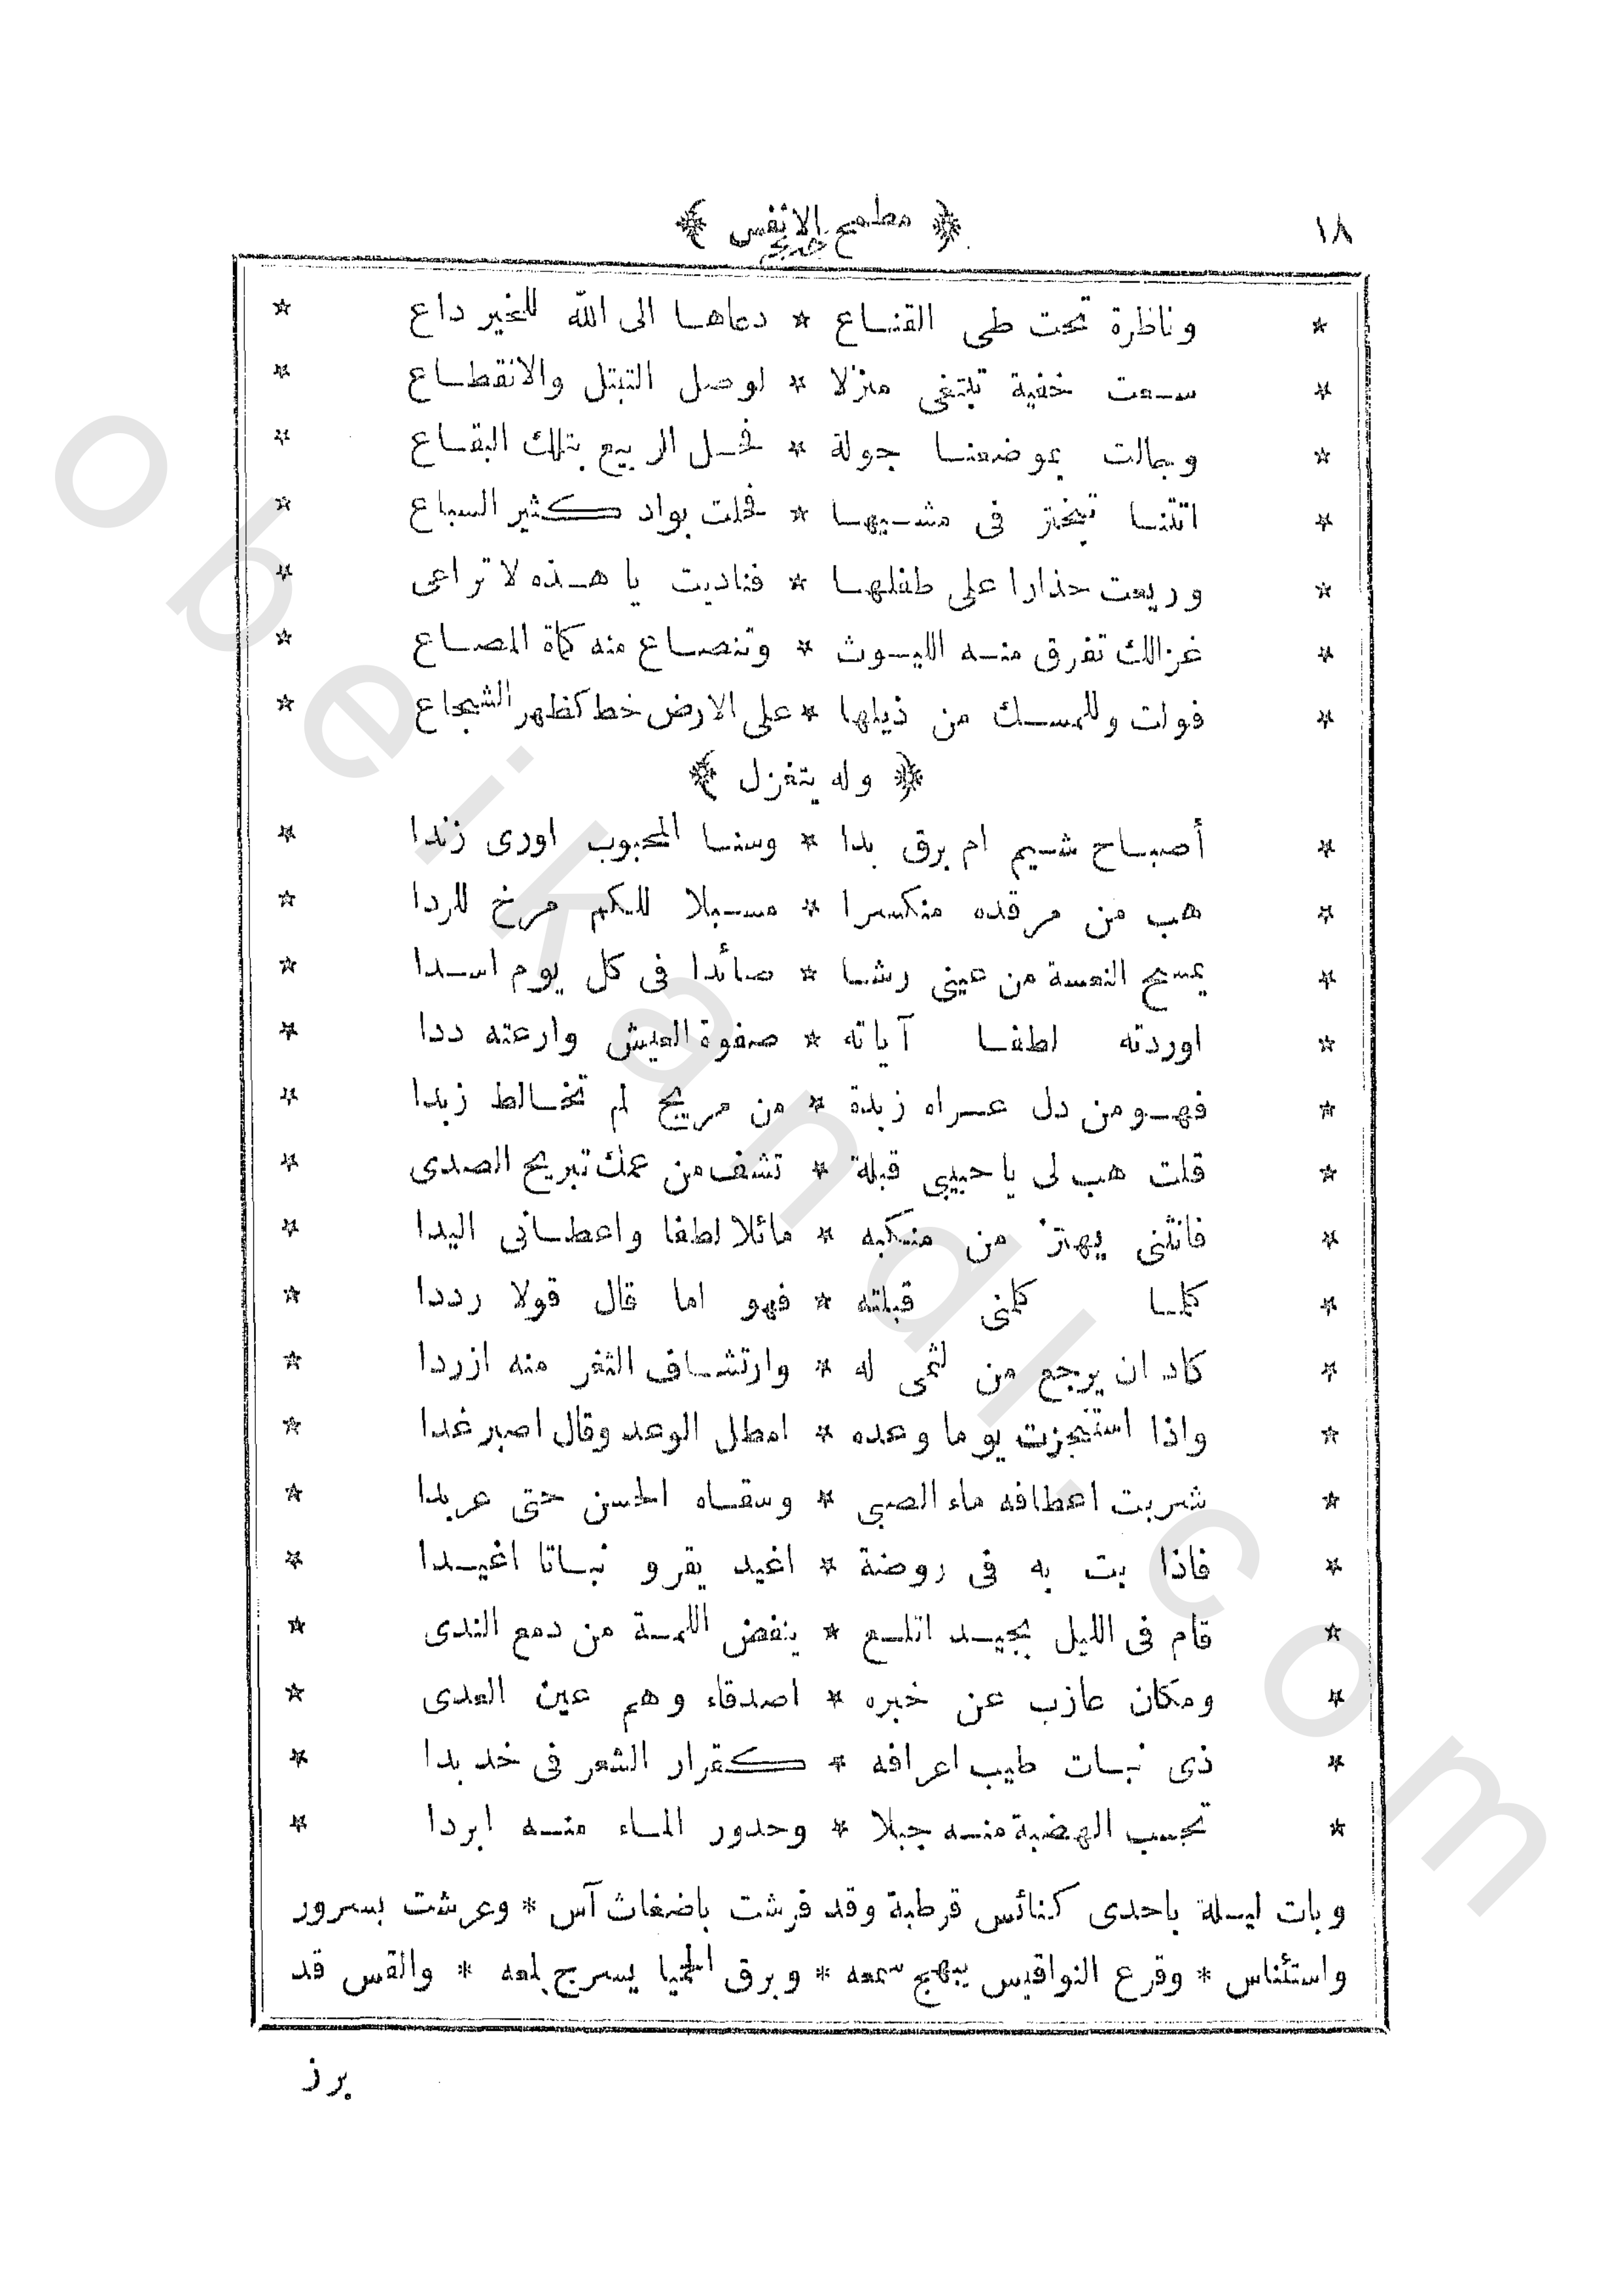 ١٨ ﴿ مطمح الانفس ﴾
* وناظرة تحت طى القناع * دعاها الى الله للخير داع *
* سعت خفية تبتغى منزلا * لوصل التبتل والانقطاع *
* وجالت بموضعنا جولة * فحل الربيع بتلك البقاع *
* اتتنا تبختر فى مشيها * فحلت بواد كثير السباع *
* وريعت حذارا على طفلها * فناديت يا هذه لا تراعى *
* غزالك تفرق منه الليوث * وتنصاع منه كماة المصاع *
* فولت وللمسك من ذيلها * على الارض خط كظهر الشجاع *
﴿ وله يتغزل ﴾
* أصباح شيم ام برق بدا * وسنا المحبوب اورى زندا *
* هب من مرقده منكسرا * مسبلا للكم مرخ للردا *
* يمسح النعسة من عينى رشا * صائدا فى كل يوم اسدا *
* اوردته لطفا آياته * صفوة العيش وارعته ددا *
* فهو من دل عراه زبدة * من مريج لم تخالط زبدا *
* قلت هب لى يا حبيبى قبلة * تشف من عمك تبريح الصدى *
* فانثنى يهتز من منكبه * مائلا لطفا واعطانى اليدا *
* كلما كلمنى قبلته * فهو اما قال قولا رددا *
* كاد ان يرجع من لثمى له * وارتشاف الثغر منه ازردا *
* واذا استنجزت يوما وعده * امطل الوعد وقال اصبر غدا *
* شربت اعطافه ماء الصبى * وسقاه الحسن حتى عربدا *
* فاذا بت به فى روضة * اغيد يقرو نباتا اغيدا *
* قام فى الليل بجيد اتلع * ينفض اللمة من دمع الندى *
* ومكان عازب عن خبره * اصدقاء وهم عين العدى *
* ذى نبات طيب اعرافه * كقرار الشعر فى خد بدا *
* تحسب الهضبة منه جبلا * وحدور الماء منه ابردا *
وبات ليلة باحدى كنائس قرطبة وقد فرشت باضغاث آس * وعرشت بسرور
واستئناس * وقرع النواقيس يبهج سمعه * وبرق الحميا يسرج لمعه * والقس قد
برز
obeikandl.com